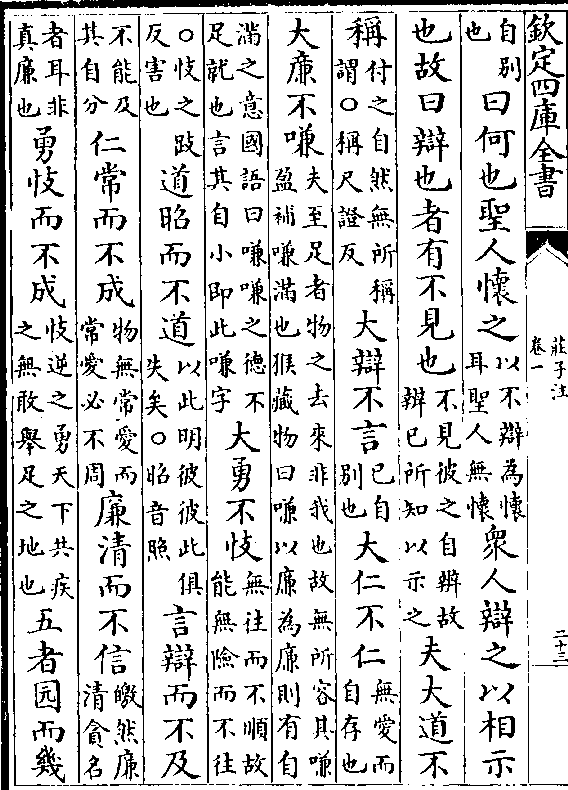 欽定四庫全書
莊子注
卷一
二十三
自别也曰何也聖人懷之以不辯為懷耳聖人無懷衆人辯之以相示
也故曰辯也者有不見也不見彼之自辨故辨已所知以示之夫大道不
稱付之自然無所稱謂○稱尺證反大辯不言已自别也大仁不仁無愛而自存也
大廉不嗛夫至足者物之去來非我也故無所容其嗛盈補嗛滿也猴藏物曰嗛以廉為廉則有自
滿之意國語曰嗛嗛之德不足就也言其自小即此嗛字大勇不忮無往而不順故能無險而不往
○忮之跂反害也道昭而不道以此明彼彼此俱失矣○昭音照言辯而不及
不能及其自分仁常而不成物無常愛而常愛必不周廉清而不信皦然廉清貪名
者耳非真廉也勇忮而不成忮逆之勇天下共疾之無敢舉足之地也五者园而幾